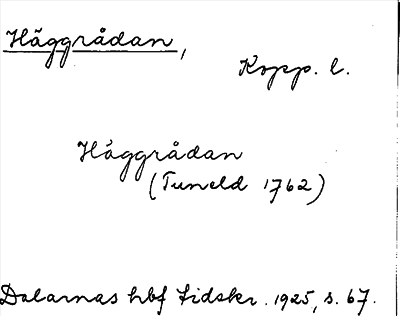 Häggrådan,
Kopp. l.
Häggrådan
(Tuneld 1762)
Dalarnas hbf tidskr. 1925, s. 67.